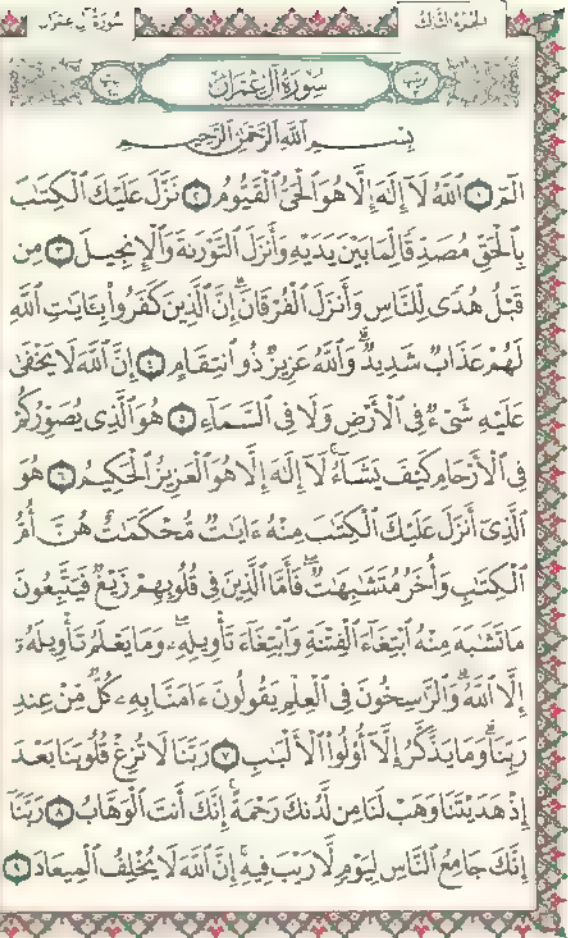 الجزء الثالث
سورة آل عمران
سُورَةُ آلِ عِمْرَانَ
بِسْمِ ٱللَّهِ ٱلرَّحْمَٰنِ ٱلرَّحِيمِ
الٓمٓ ١ ٱللَّهُ لَآ إِلَٰهَ إِلَّا هُوَ ٱلْحَىُّ ٱلْقَيُّومُ ٢ نَزَّلَ عَلَيْكَ ٱلْكِتَٰبَ
بِٱلْحَقِّ مُصَدِّقًا لِّمَا بَيْنَ يَدَيْهِ وَأَنزَلَ ٱلتَّوْرَىٰةَ وَٱلْإِنجِيلَ ٣ مِن
قَبْلُ هُدًى لِّلنَّاسِ وَأَنزَلَ ٱلْفُرْقَانَ ۗ إِنَّ ٱلَّذِينَ كَفَرُوا۟ بِـَٔايَٰتِ ٱللَّهِ
لَهُمْ عَذَابٌ شَدِيدٌ ۗ وَٱللَّهُ عَزِيزٌ ذُو ٱنتِقَامٍ ٤ إِنَّ ٱللَّهَ لَا يَخْفَىٰ
عَلَيْهِ شَىْءٌ فِى ٱلْأَرْضِ وَلَا فِى ٱلسَّمَآءِ ٥ هُوَ ٱلَّذِى يُصَوِّرُكُمْ
فِى ٱلْأَرْحَامِ كَيْفَ يَشَآءُ ۚ لَآ إِلَٰهَ إِلَّا هُوَ ٱلْعَزِيزُ ٱلْحَكِيمُ ٦ هُوَ
ٱلَّذِىٓ أَنزَلَ عَلَيْكَ ٱلْكِتَٰبَ مِنْهُ ءَايَٰتٌ مُّحْكَمَٰتٌ هُنَّ أُمُّ
ٱلْكِتَٰبِ وَأُخَرُ مُتَشَٰبِهَٰتٌ ۖ فَأَمَّا ٱلَّذِينَ فِى قُلُوبِهِمْ زَيْغٌ فَيَتَّبِعُونَ
مَا تَشَٰبَهَ مِنْهُ ٱبْتِغَآءَ ٱلْفِتْنَةِ وَٱبْتِغَآءَ تَأْوِيلِهِۦ ۗ وَمَا يَعْلَمُ تَأْوِيلَهُۥٓ
إِلَّا ٱللَّهُ ۗ وَٱلرَّٰسِخُونَ فِى ٱلْعِلْمِ يَقُولُونَ ءَامَنَّا بِهِۦ كُلٌّ مِّنْ عِندِ
رَبِّنَا ۗ وَمَا يَذَّكَّرُ إِلَّآ أُو۟لُوا۟ ٱلْأَلْبَٰبِ ٧ رَبَّنَا لَا تُزِغْ قُلُوبَنَا بَعْدَ
إِذْ هَدَيْتَنَا وَهَبْ لَنَا مِن لَّدُنكَ رَحْمَةً ۚ إِنَّكَ أَنتَ ٱلْوَهَّابُ ٨ رَبَّنَآ
إِنَّكَ جَامِعُ ٱلنَّاسِ لِيَوْمٍ لَّا رَيْبَ فِيهِ ۚ إِنَّ ٱللَّهَ لَا يُخْلِفُ ٱلْمِيعَادَ ٩